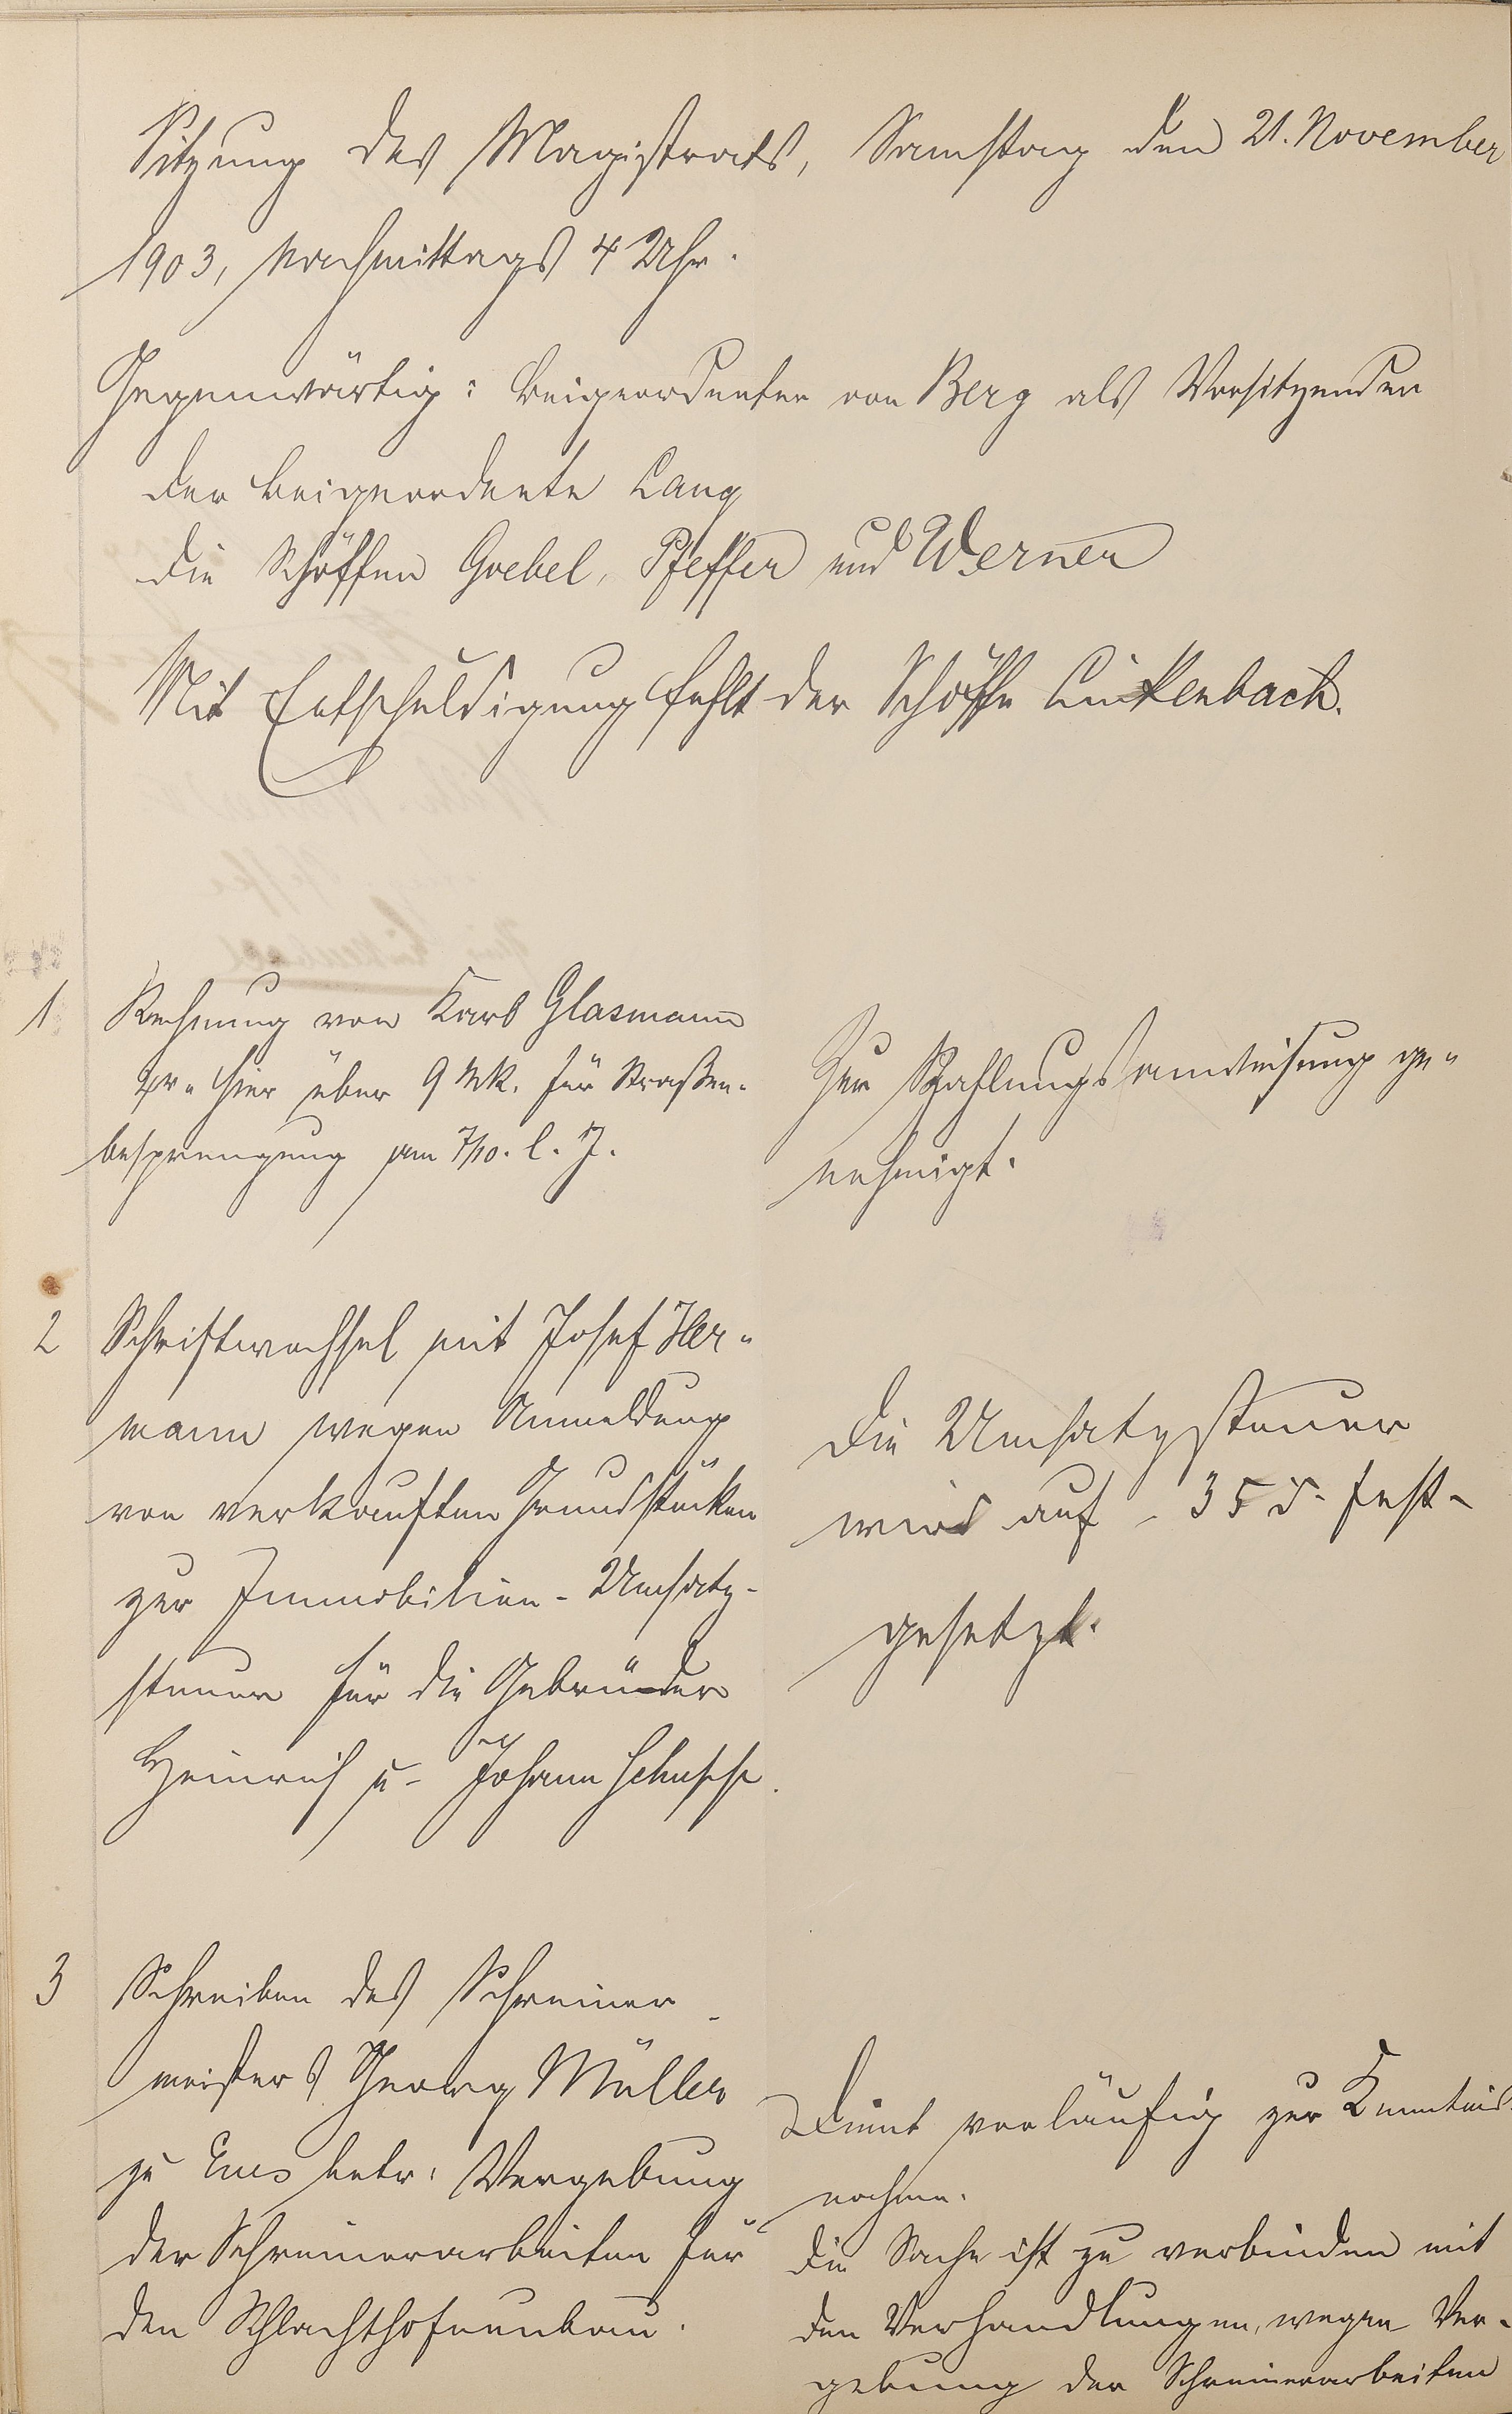 Sitzung des Magistrats, Samstag den 21. November
1903, Nachmittags 4 Uhr.
Gegenwärtig: Beigeordneter von Berg als Vorsitzenden
der Beigeordnete Lang
die Schöffen Goebel, Pfeffer und Werner
Mit Entschuldigung fehlt der Schöffe Linkenbach.
1 Rechnung von Karl Glasmann
hier über 9 Mk. für Straßen-
besprengung am 7/10. l. J.
Zur Zahlungsanweisung ge-
nehmigt.
2 Schriftwechsel mit Josef Her-
mann wegen Anmeldung
von verkauften Grundstücken
zur Immobilien-Umsatz-
steuer für die Gebrüder
Heinrich u. Johann Schupp.
Die Umsatzsteuer
wird auf fest-
gesetzt.
3 Schreiben des Schreiner-
meisters Georg Müller
zu Ems betr. Vergebung
der Schreinerarbeiten für
den Schlachthofneubau.
Dient vorläufig zur Kenntniß
nahme.
Die Sache ist zu verbinden mit
den Verhandlungen, wegen Ver-
gebung der Schreinerarbeiten